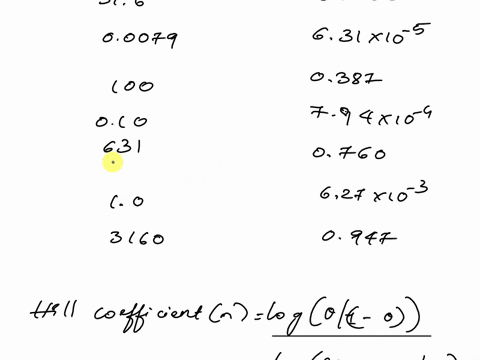 0.0079 6.31 x 10^-5
100 0.387
0.10 7.94 x 10^-4
631 0.760
1.0 6.27 x 10^-3
3160 0.947
Hill coefficient (n) = log (θ/(1 - θ))